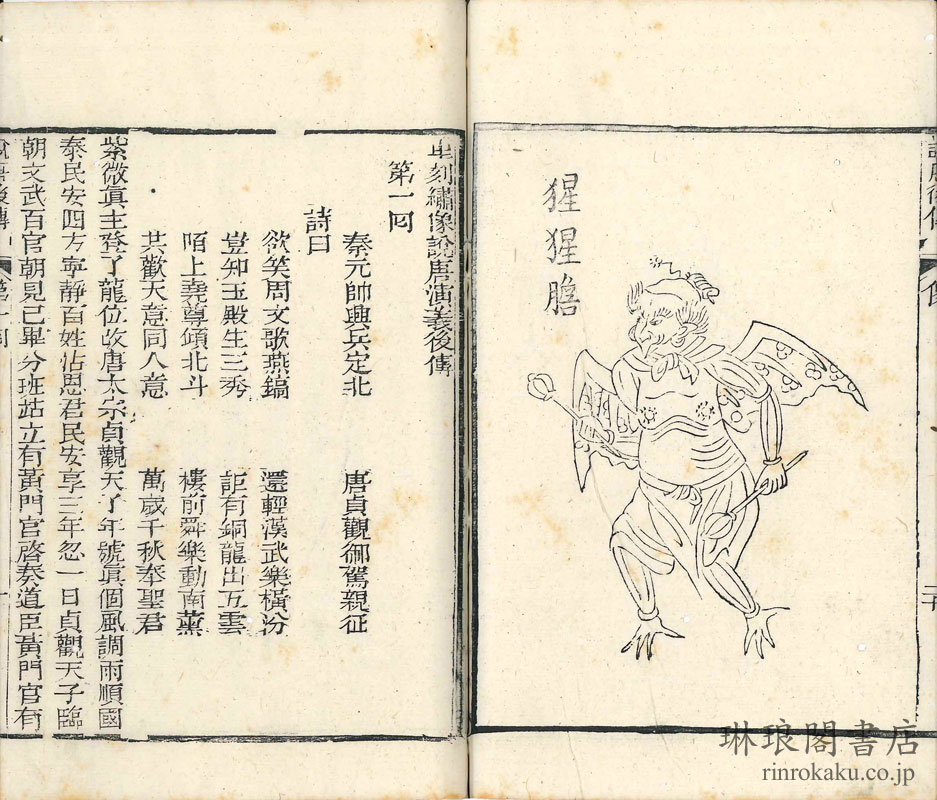 猩猩膽
刻繡像說唐演義後傳
第一囘
秦元帥興兵定北 唐貞觀御駕親征
詩曰
欲笑周文歌燕鎬 還輕漢武樂橫汾
豈知玉殿生三秀 詎有銅龍出五雲
陌上堯尊頌北斗 樓前舜樂動南薰
共歡天意同人意 萬歲千秋奉聖君
紫微眞主登了龍位改唐太宗貞觀天了年號眞個風調雨順國
泰民安四方寧靜百姓沾恩君民安享三年忽一日貞觀天子臨
朝文武百官朝見已畢分班站立有黃門官啓奏道臣黃門官有
琳琅閣書店
rinrokaku.co.jp